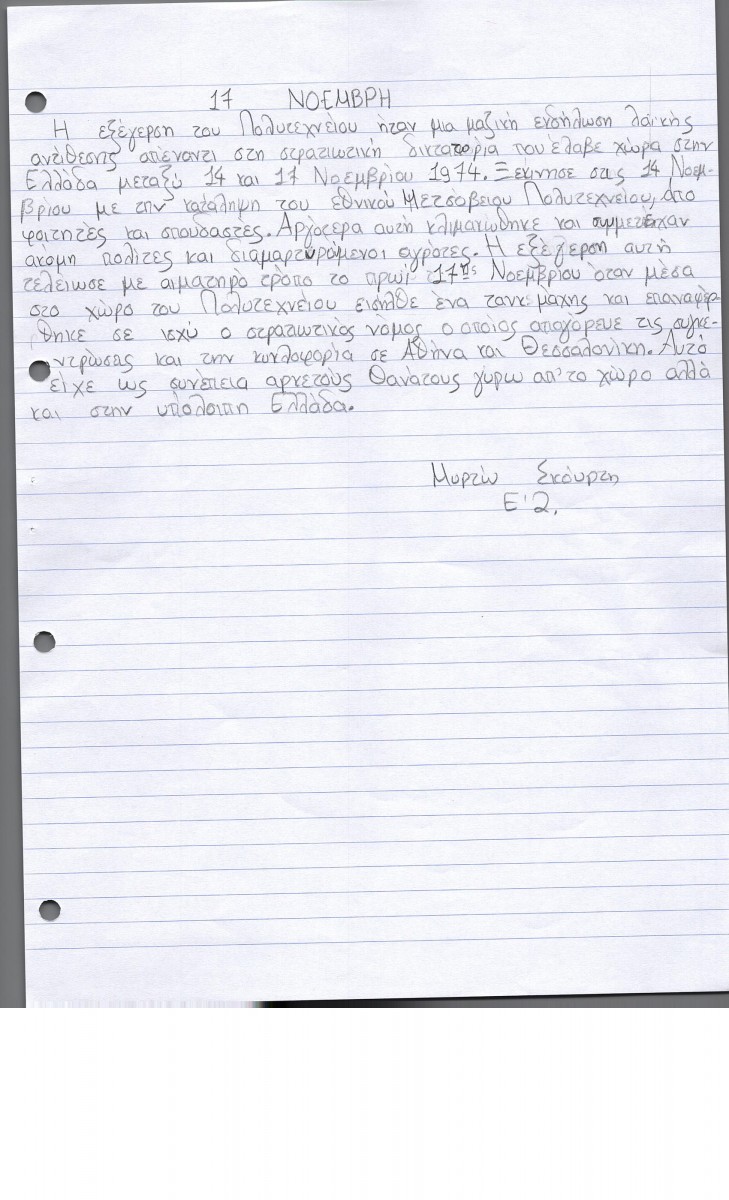 17 ΝΟΕΜΒΡΗ
Η εξέγερση του Πολυτεχνείου ήταν μια μαζική εκδήλωση λαϊκής
αντίθεσης απέναντι στη στρατιωτική δικτατορία που έλαβε χώρα στην
Ελλάδα μεταξύ 14 και 17 Νοεμβρίου 1974. Ξεκίνησε στις 14 Νοεμ-
βρίου με την κατάληψη του εθνικού Μετσόβειου Πολυτεχνείου, από
φοιτητές και σπουδαστές. Αργότερα αυτή κλιματώθηκε και συμμετείχαν
ακόμη πολίτες και διαμαρτυρόμενοι αγρότες. Η εξέγερση αυτή
τελείωσε με αιματηρό τρόπο το πρωί 17ης Νοεμβρίου όταν μέσα
στο χώρο του Πολυτεχνείου εισήλθε ένα τανκ μάχης και επαναφέρ-
θηκε σε ισχύ ο στρατιωτικός νόμος ο οποίος απαγόρευε τις συγκε-
ντρώσεις και την κυκλοφορία σε Αθήνα και Θεσσαλονίκη. Αυτό
είχε ως συνέπεια αρκετούς θανάτους γύρω απ' το χώρο αλλά
και στην υπόλοιπη Ελλάδα.
Μυρτώ Σκούρτη
Ε'2.